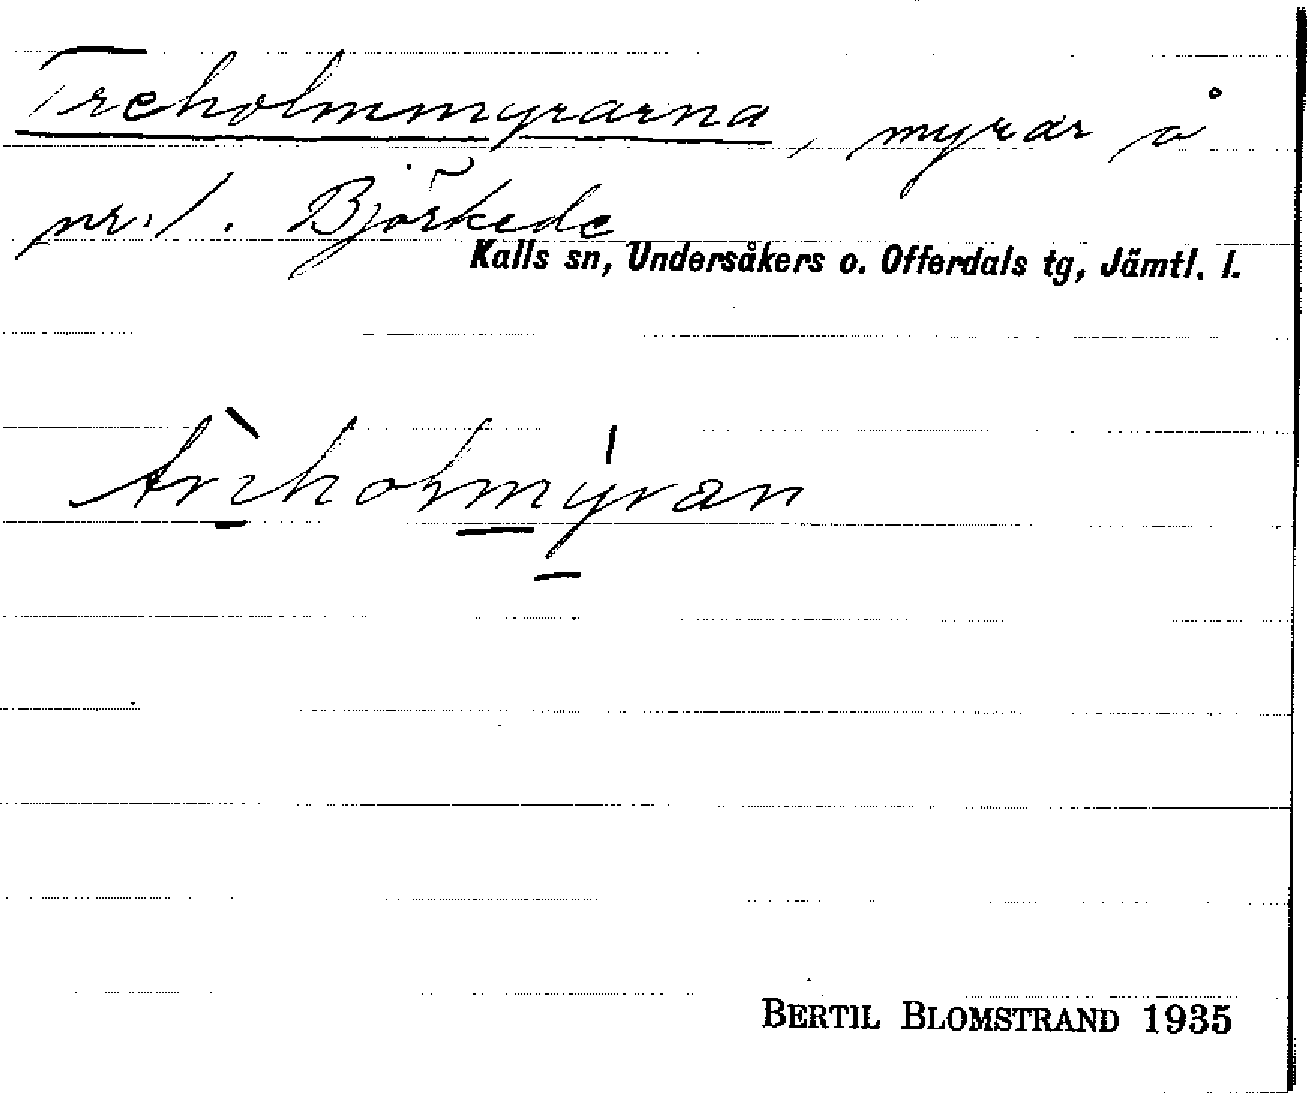 Treholmmyrarna, myrar å
nr. 1. Björkede
Kalls sn, Undersåkers o. Offerdals tg, Jämtl. l.
trèholmýran
BERTIL BLOMSTRAND 1935